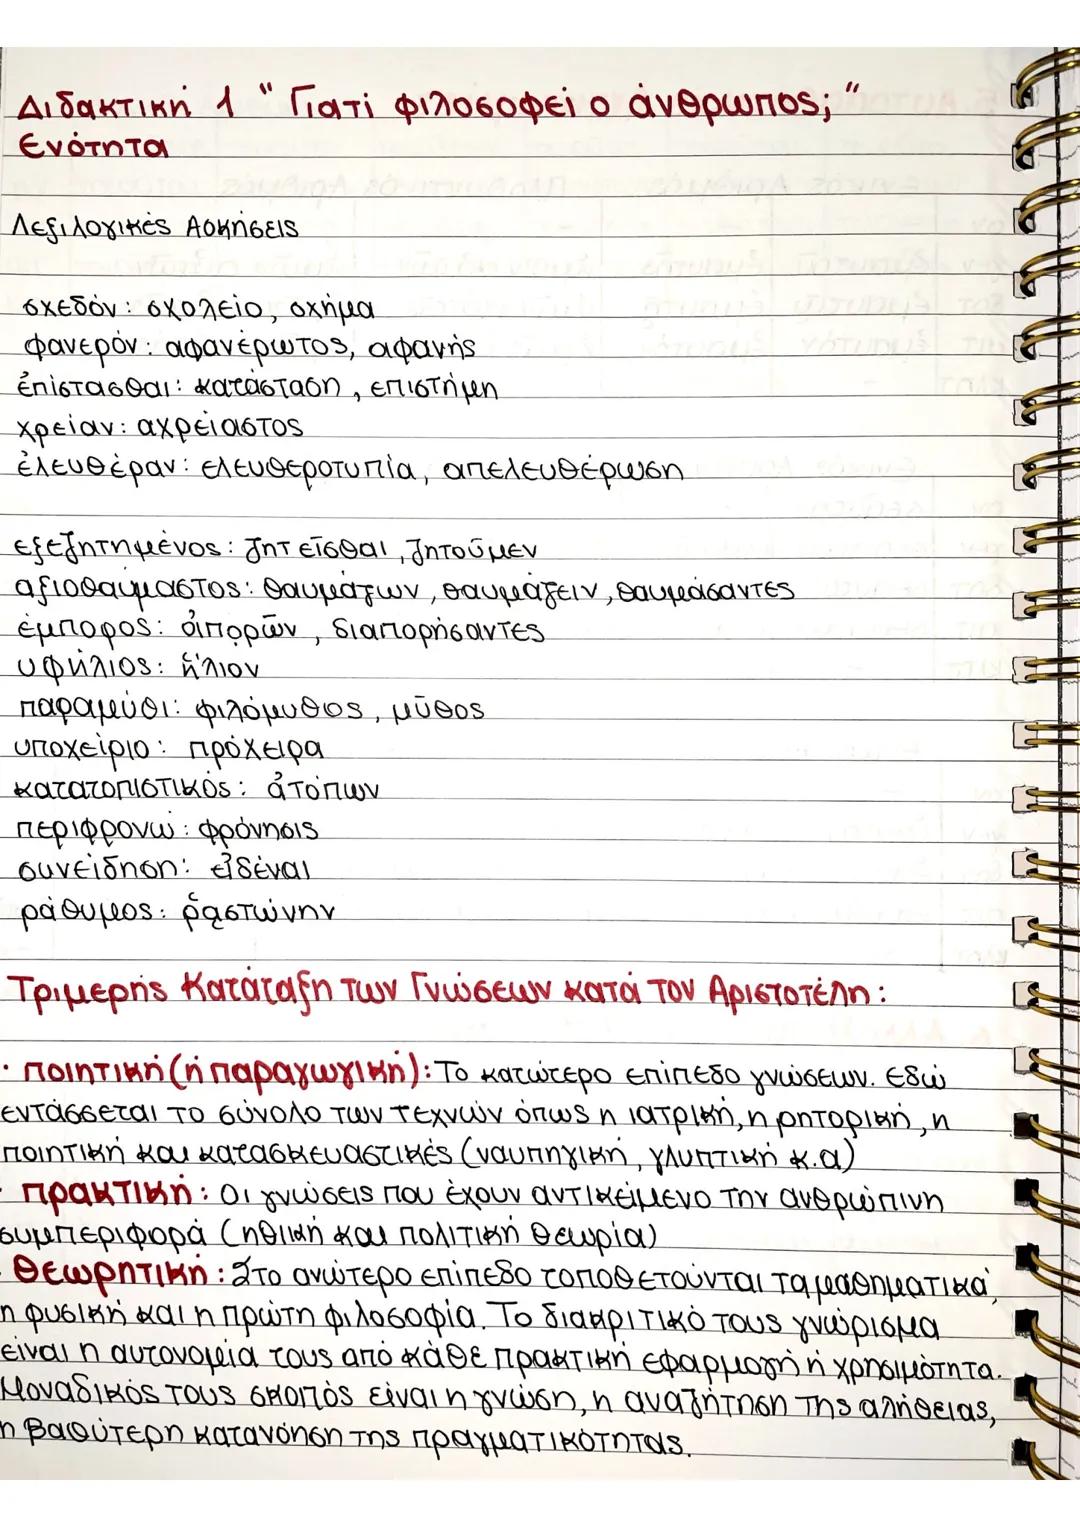 Διδακτική 1 " Γιατί φιλοσοφεί ο άνθρωπος; "
Ενότητα
Λεξιλογικές Ασκήσεις
σχεδόν: σχολείο, σχήμα
φανερόν: αφανέρωτος, αφανής
ἐπίστασθαι: κατάσταση, επιστήμη
χρείαν: αχρείαστος
ἐλευθέραν: ελευθεροτυπία, απελευθέρωση
εξεζητημένος: ζητεῖσθαι, ζητοῦμεν
αξιοθαύμαστος: θαυμάζων, θαυμάζειν, θαυμάσαντες
έμπορος: ἀπορῶν, διαπορήσαντες
υφήλιος: ἥλιον
παραμύθι: φιλόμυθος, μῦθος
υποχείριο: πρόχειρα
κατατοπιστικός: ἀτόπων
περιφρονώ: φρόνησις
συνείδηση: εἰδέναι
ράθυμος: ῥᾳστώνην
Τριμερής Κατάταξη των Γνώσεων κατά τον Αριστοτέλη:
· ποιητική (ή παραγωγική): Το κατώτερο επίπεδο γνώσεων. Εδώ
εντάσσεται το σύνολο των τεχνών όπως η ιατρική, η ρητορική, η
ποιητική και κατασκευαστικές (ναυπηγική, γλυπτική κ.α)
· πρακτική: Οι γνώσεις που έχουν αντικείμενο την ανθρώπινη
συμπεριφορά (ηθική και πολιτική θεωρία)
· Θεωρητική: Στο ανώτερο επίπεδο τοποθετούνται τα μαθηματικά,
η φυσική και η πρώτη φιλοσοφία. Το διακριτικό τους γνώρισμα
είναι η αυτονομία τους από κάθε πρακτική εφαρμογή ή χρησιμότητα.
Μοναδικός τους σκοπός είναι η γνώση, η αναζήτηση της αλήθειας,
η βαθύτερη κατανόηση της πραγματικότητας.